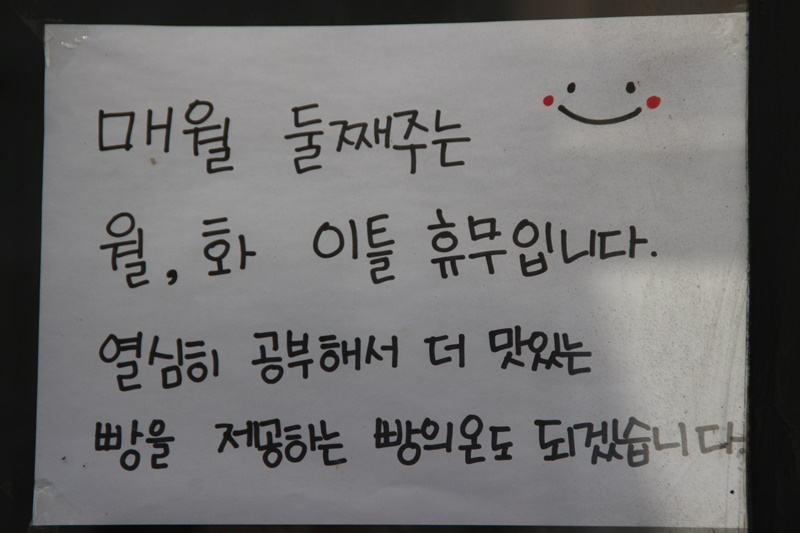 매월 둘째주는
월, 화 이틀 휴무입니다.
열심히 공부해서 더 맛있는
빵을 제공하는 빵의온도 되겠습니다.